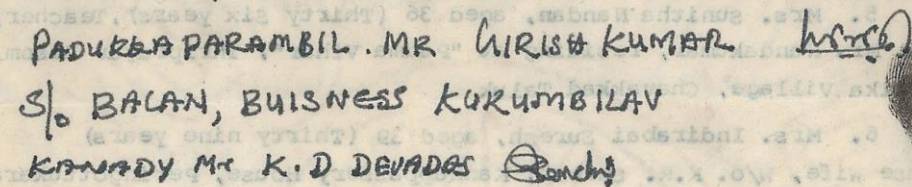 PADUKKAPARAMBIL. MR GIRISH KUMAR
S/o BALAN, BUISNESS KURUMBILAV
KANADY Mr K. D DEVADAS